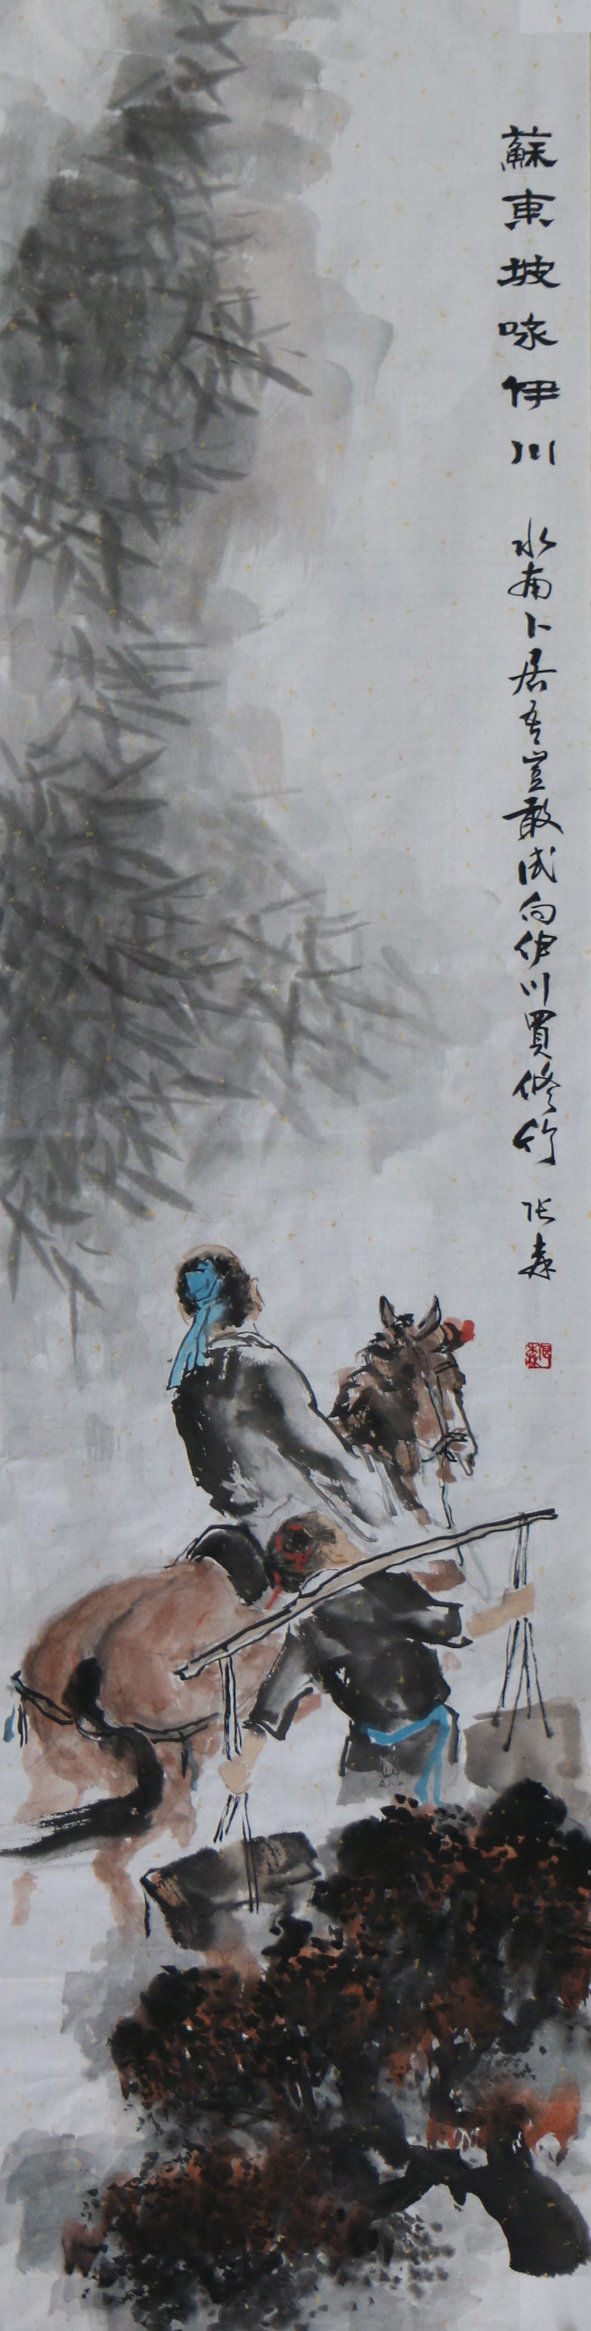 蘇東坡咏伊川 水南卜居吾豈敢試向伊川買修竹 张森